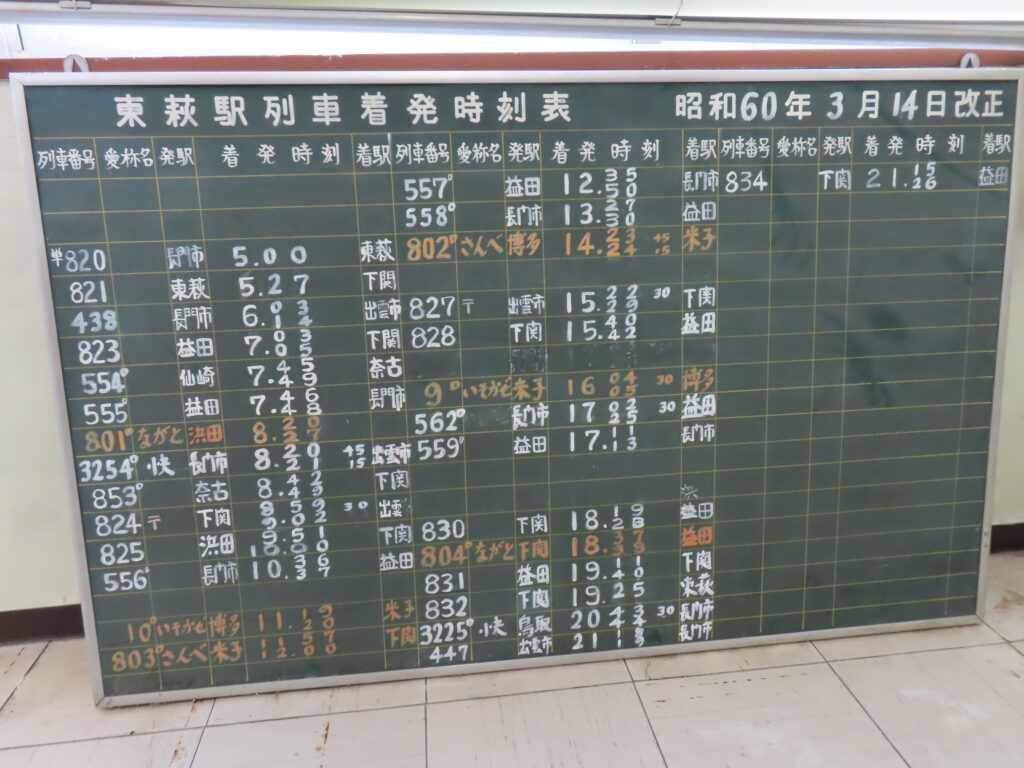 東萩駅列車着発時刻表 昭和60年3月14日改正
列車番号 愛称名 発駅 着発時刻 着駅 列車番号 愛称名 発駅 着発時刻 着駅 列車番号 愛称名 発駅 着発時刻 着駅
557 益田 12.35 50 長門市 834 下関 21.15 26 益田
558 長門市 13.27 30 益田
単820 長門市 5.00 東萩 802 さんべ 博多 14.23 24 米子
821 東萩 5.27 下関
438 長門市 6.03 14 出雲市 827 〒 出雲市 15.22 29 30 下関
823 益田 7.03 05 下関 828 下関 15.40 42 益田
554 仙崎 7.45 49 奈古
555 益田 7.46 48 長門市 9 いそかぜ 米子 16 04 05 30 博多
801 ながと 浜田 8.20 27 562 長門市 17 02 25 30 益田
3254 快 長門市 8.20 21 45 15 出雲市 559 益田 17.11 13 長門市
853 奈古 8.42 下関
824 〒 下関 30 出雲
825 浜田 下関 830 下関 18.19 28 益田
556 長門市 10.36 37 益田 804 ながと 下関 18.37 益田
831 益田 19.11 40 下関
10 いそかぜ 博多 11.19 20 米子 832 下関 19.25 東萩
803 さんべ 米子 11.57 12.00 下関 3225 快 鳥取 20 43 44 30 長門市
447 出雲市 21 長門市